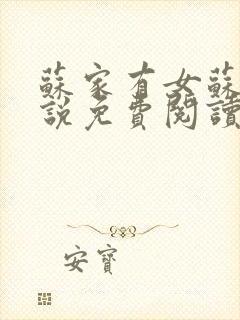 蘇家有女蘇
說免費閱讀
安寶